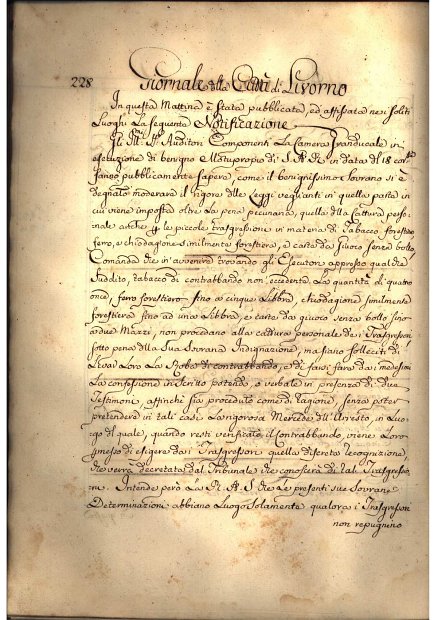 228 Giornale della Città di Livorno
In questa Mattina è Stata pubblicata, ed affissata nei Soliti
Luoghi La Seguente Notificazione
Gli Ill. SS. Auditori Componenti La Camera Granducale in
esecuzione di benigno Motuproprio di S. A. R. in data dell 18 cor.te
fanno pubblicamente Sapere, come il benignissimo Sovrano si è
degnato moderare il rigore delle Leggi veglianti in quella parte in
cui viene imposta oltre La pena pecuniaria, quella della Cattura perso-
nale anche per le piccole trasgressioni in materia di Tabacco forestiero
ferro, e chiodagione Similmente forestiera, e carte da Giuoco Senza bollo
Comanda che in avvenire trovando gli Esecutori appresso qualche
Suddito, tabacco di contrabbando non eccedente La quantità di quattro
once, ferro forestiero fino a cinque Libbre, chiodagione Similmente
forestiera fino ad una Libbra, e carte da giuoco Senza bollo fino
a due Mazzi, non procedano alla cattura personale dei Trasgressori
Sotto pena della Sua Sovrana Indignazione, ma siano Solleciti di
Levar Loro La Roba di contrabbando, e di farsi fare da i medesimi
La confessione in Scritto potendo, o verbale in presenza di due
Testimoni, affinchè sia proceduto come di ragione, senza poter
pretendere in tali casi La rigorosa Mercede dell Arresto, in Luo-
go del quale, quando resti verificato il Contrabbando, viene Loro
permesso di esigere da i Trasgressori quella discreta recognizione,
che verrà decretata dal Tribunale che conoscerà di tal Trasgressio-
ne. Intende però La R. A. S. che Le presenti sue Sovrane
Determinazioni abbiano Luogo Solamente qualora i Trasgressori
non repugnino